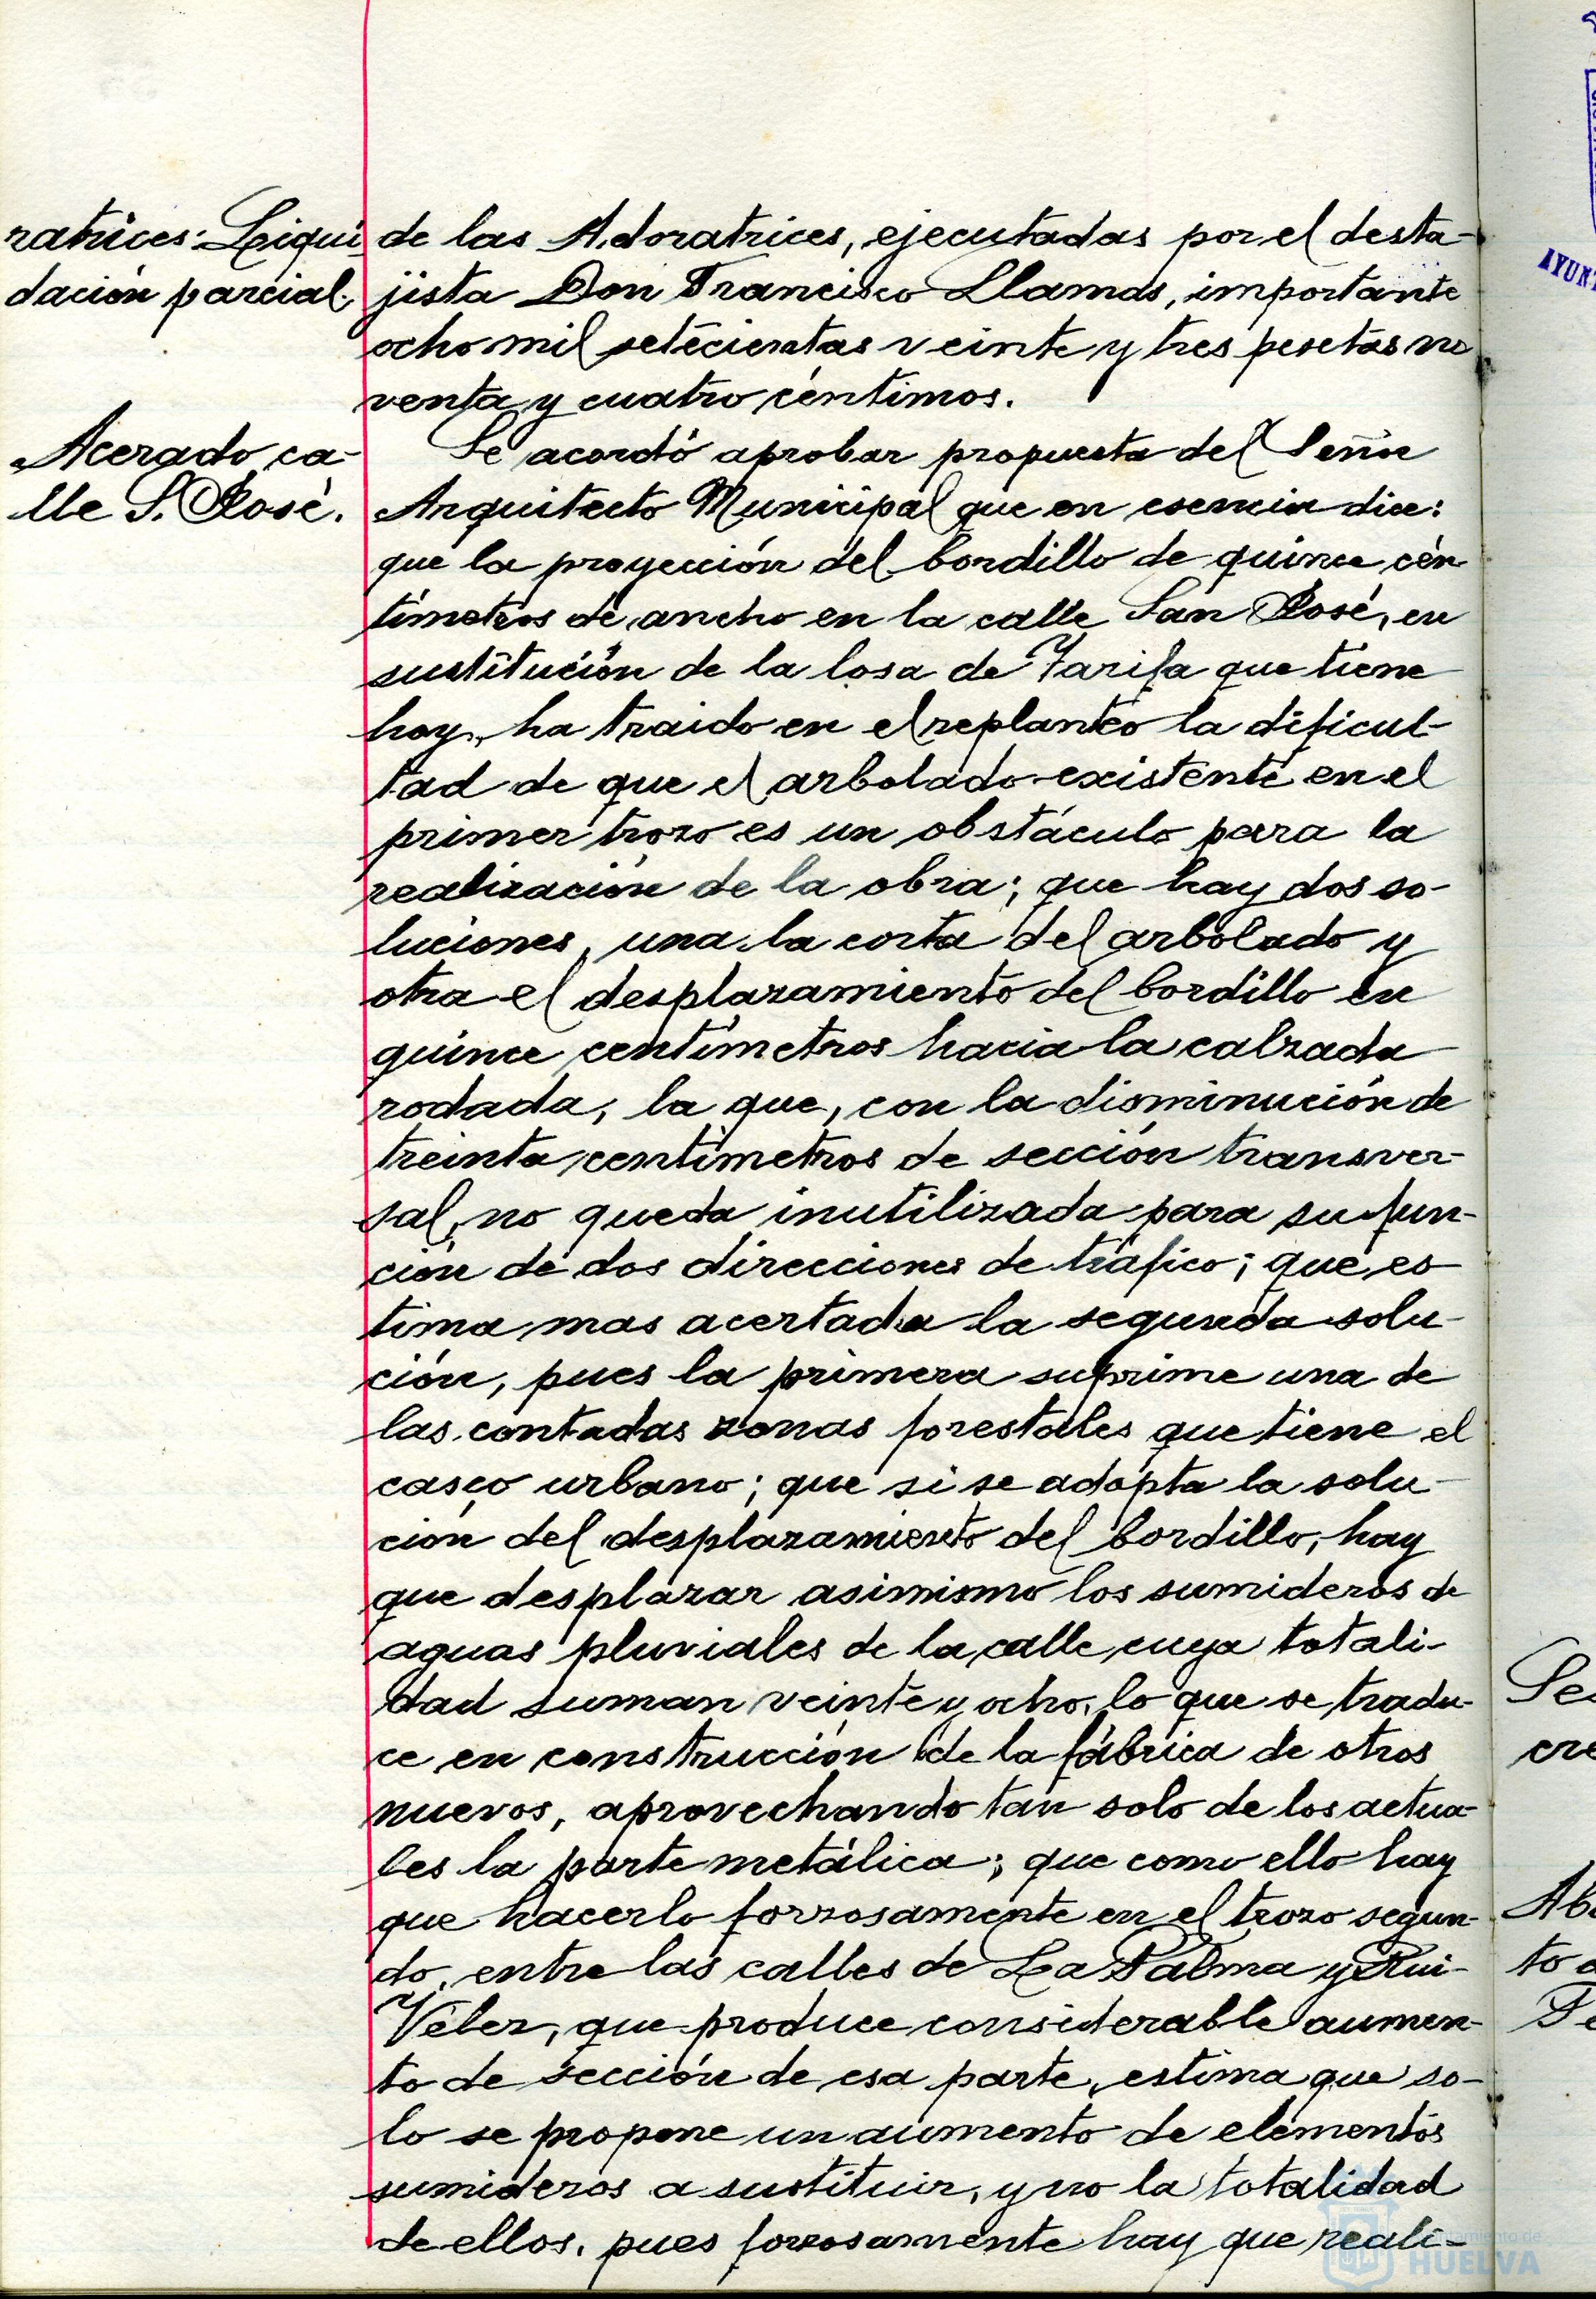 ratrices: Liqui-
dación parcial.
de las Adoratrices, ejecutadas por el desta-
jista Don Francisco Llamas, importante
ocho mil setecientas veinte y tres pesetas no
venta y cuatro céntimos.
Acerado ca-
lle S. José.
Se acordó aprobar propuesta del Señor
Arquitecto Municipal que en esencia dice:
que la proyección del bordillo de quince cen-
tímetros de ancho en la calle San José, en
sustitución de la losa de Tarifa que tiene
hoy, ha traido en el replanteo la dificul-
tad de que el arbolado existente en el
primer trozo es un obstáculo para la
realización de la obra; que hay dos so-
luciones, una la corta del arbolado y
otra el desplazamiento del bordillo en
quince centímetros hacia la calzada
rodada, la que, con la disminución de
treinta centímetros de sección transver-
sal, no queda inutilizada para su fun-
ción de dos direcciones de tráfico; que es
tima mas acertada la segunda solu-
ción, pues la primera suprime una de
las contadas zonas forestales que tiene el
casco urbano; que si se adopta la solu-
ción del desplazamiento del bordillo, hay
que desplazar asimismo los sumideros de
aguas pluviales de la calle cuya totali-
dad suman veinte y ocho, lo que se tradu-
ce en construcción de la fábrica de otros
nuevos, aprovechando tan solo de los actua-
les la parte metálica; que como ello hay
que hacerlo forzosamente en el trozo segun-
do, entre las calles de La Palma y Rui-
Vélez, que produce considerable aumen-
to de sección de esa parte, estima que so-
lo se propone un aumento de elementos
sumideros a sustituir, y no la totalidad
de ellos, pues forzosamente hay que reali-
Ayuntamiento de
HUELVA
AYUN
cre
to